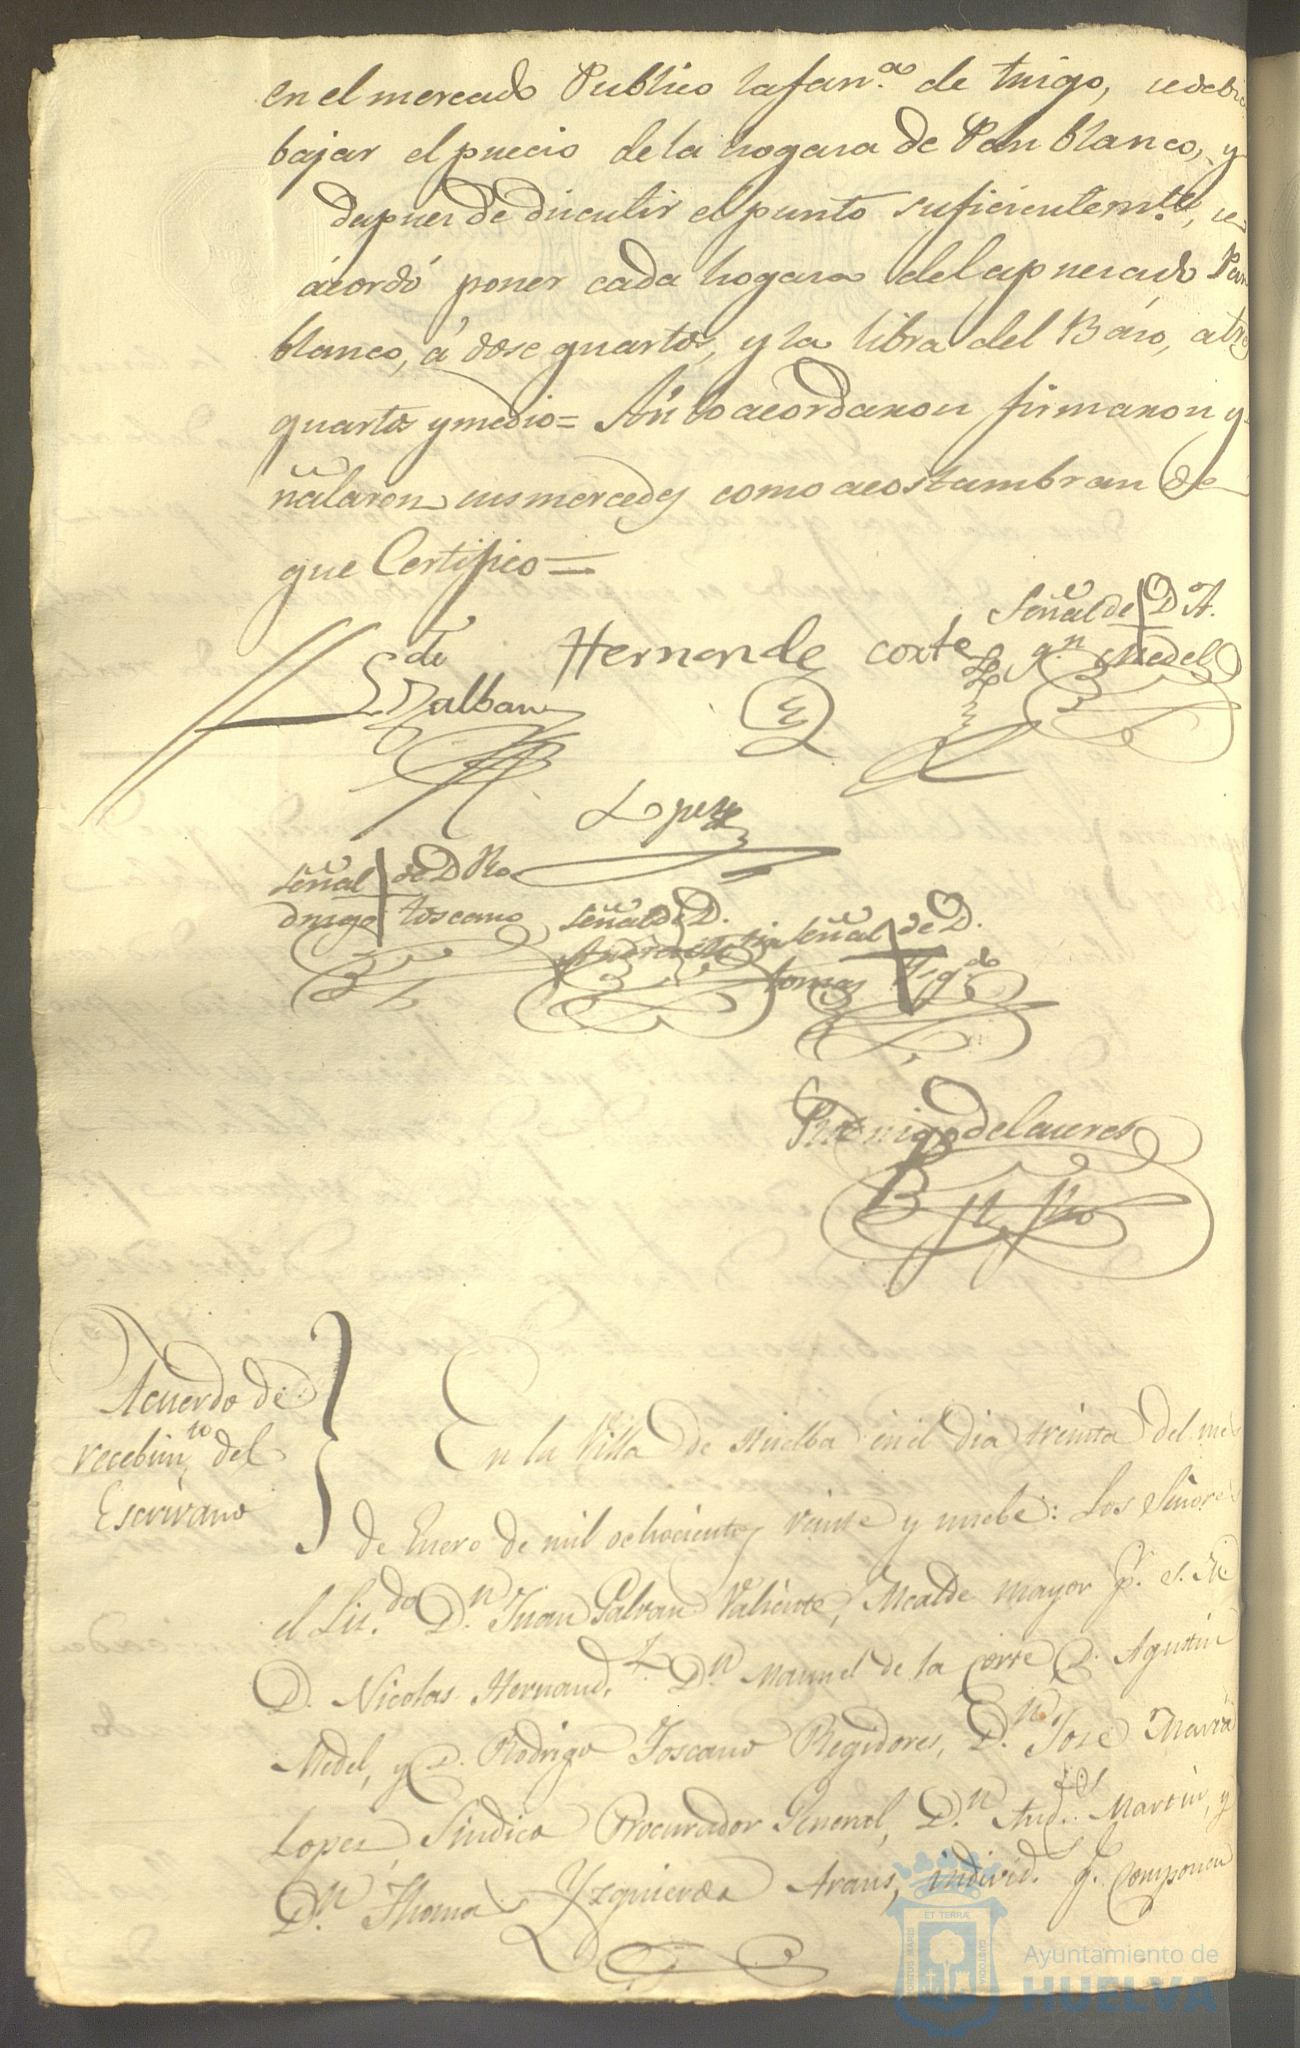 en el mercado Publico la fan.ª de trigo, se debia
bajar el precio de la hogasa de Pan blanco, y
despues de discutir el punto suficientem.te, se
acordó poner cada hogasa del expresado Pan
blanco, á dose quartos, y la libra del Baso, a tres
quartos y medio = Asi lo acordaron firmaron y se
ñalaron sus mercedes como acostumbran de
que Certifico =
Señal de D. A.
Hernande corte
g.n Medel
Galban
Lopez
Señal de D. Ro
drigo toscano
Señal de D.
Andres Martin
Señal de D.
tomas Ysq.do
Acuerdo de
recebim.to del
Escrivano
En la Villa de Huelba en el dia treinta del mes
de Enero de mil ochocientos veinte y nuebe: Los Señores
el Lis.do D.n Juan Galvan Valiente, Alcalde mayor p.r S. M.
D. Nicolas Hernand.z D.n Manuel de la Corte D. Agustin
Medel, y D. Rodrigo Toscano Regidores, D.n Jose Maria
Lopez, Sindico Procurador General, D.n And.s Martin, y
D.n Thomas Yzquierdo Arans, individ. q. componen
ET TERRÆ
PORTUS MARIS
CUSTODIA
Ayuntamiento de
HUELVA